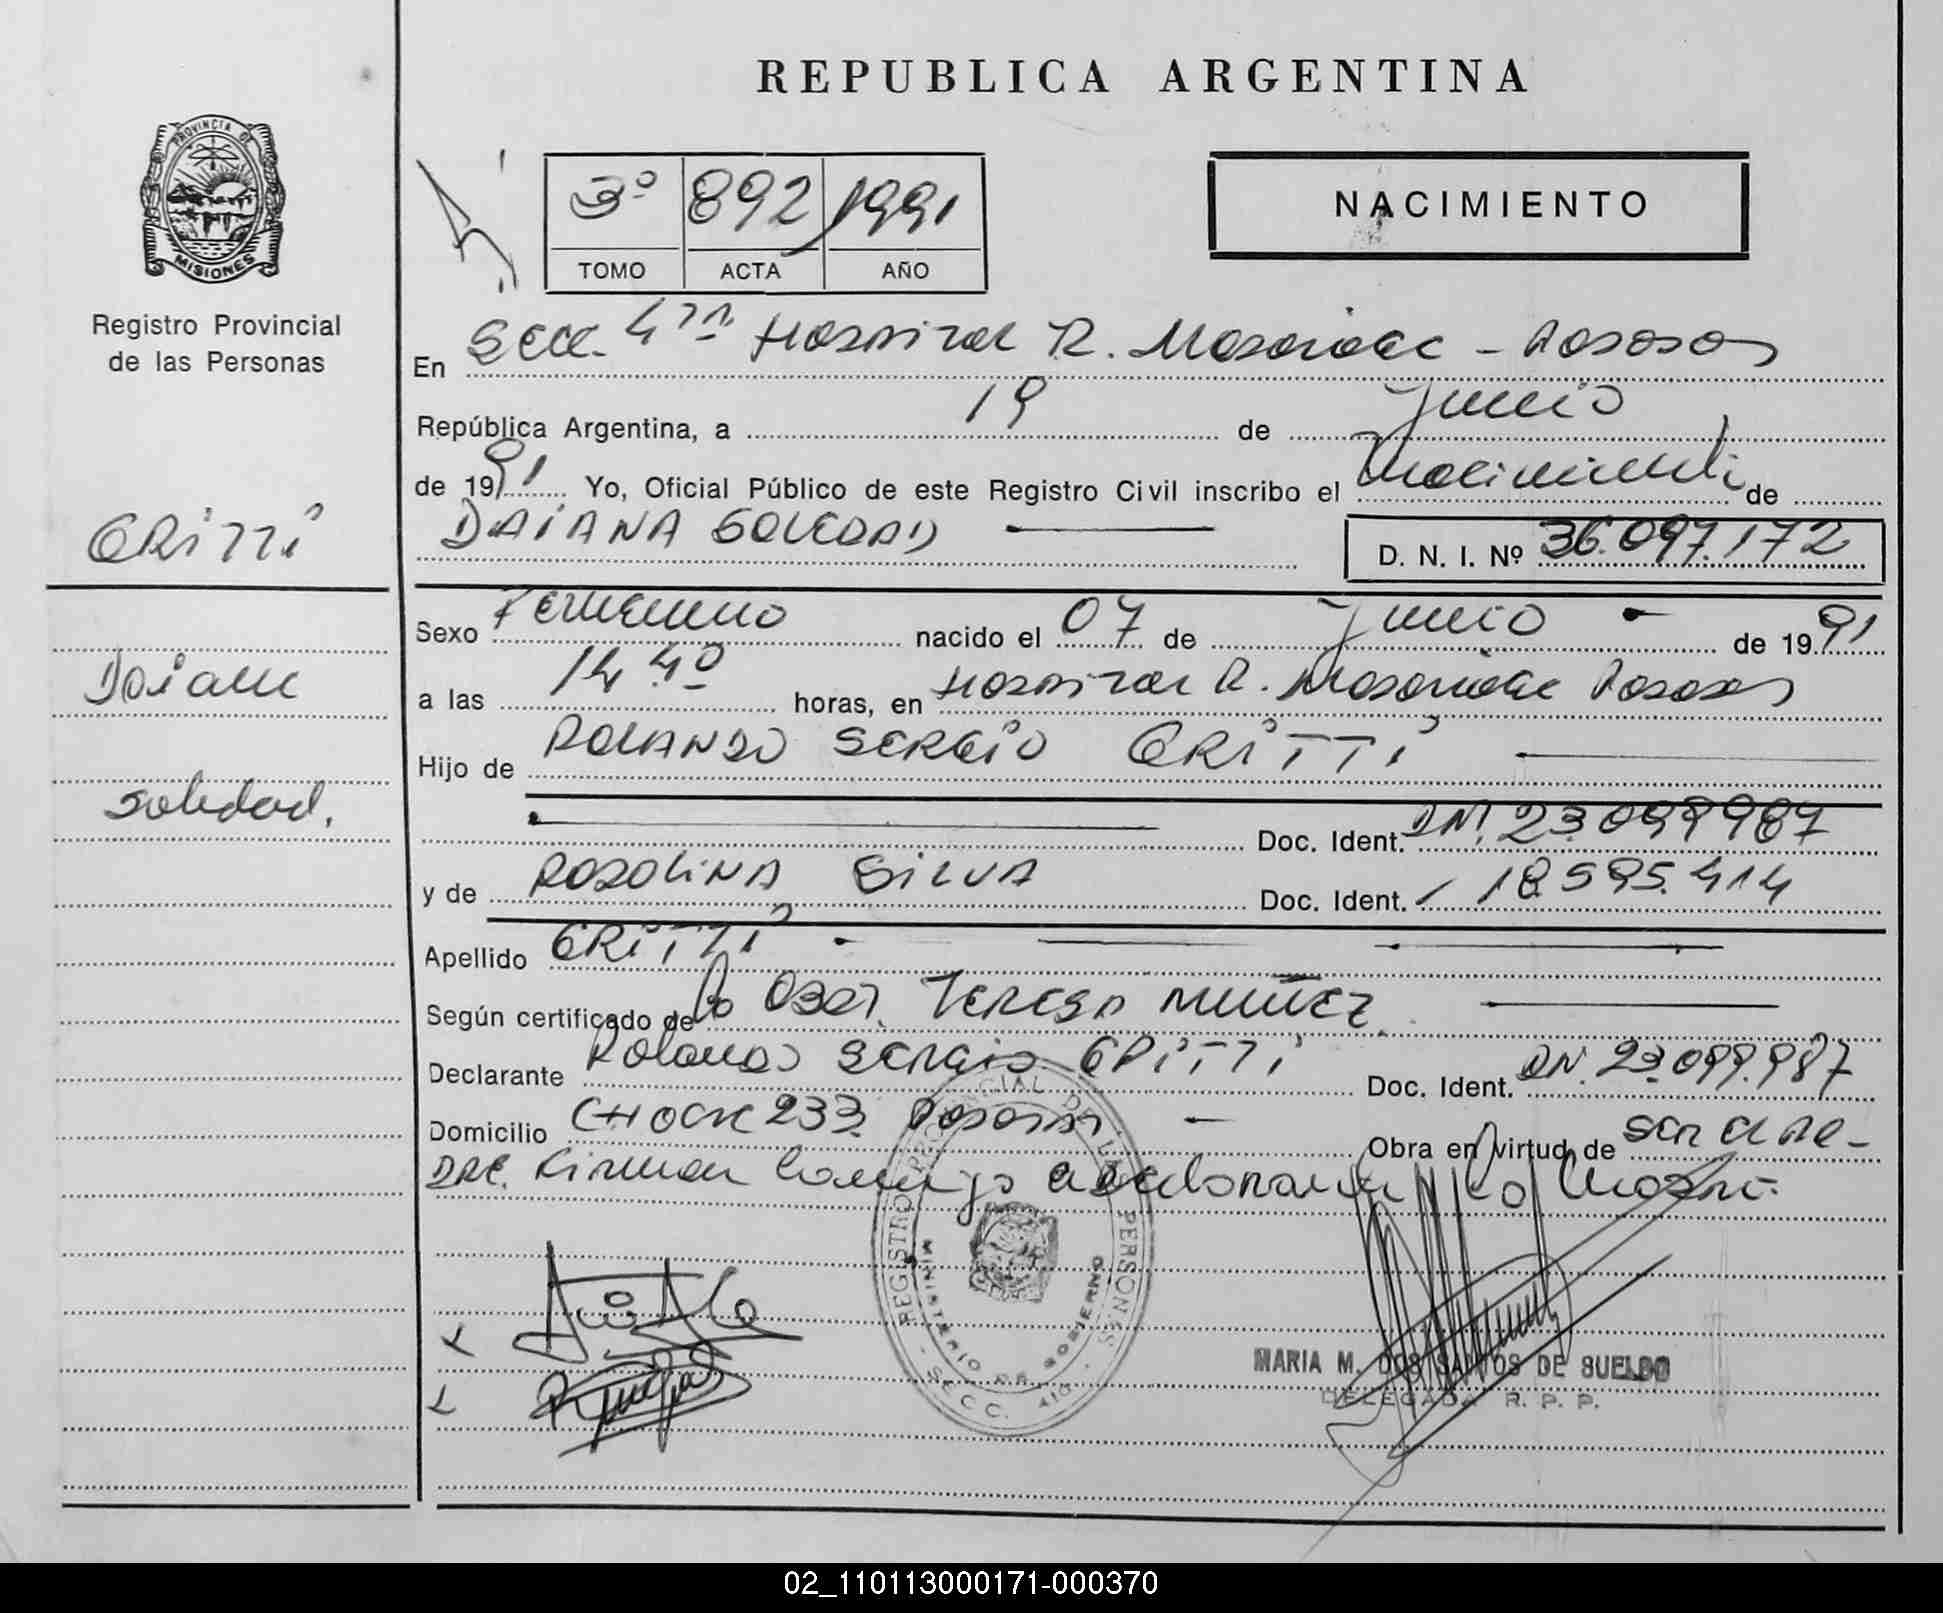 REPUBLICA ARGENTINA
PROVINCIA DE
MISIONES
Registro Provincial
de las Personas
3º 892 1991
TOMO ACTA AÑO
NACIMIENTO
En Secc. 4ta Hospital R. Madariaga - Posadas
República Argentina, a 19 de Junio
de 1991 Yo, Oficial Público de este Registro Civil inscribo el Nacimiento de
DAIANA SOLEDAD
D. N. I. Nº 36.097.172
GRITTI
Daiana
Soledad.
Sexo Femenino nacido el 07 de Junio de 1991
a las 14 40 horas, en Hospital R. Madariaga Posadas
Hijo de ROLANDO SERGIO GRITTI
Doc. Ident. DNI. 23.099987
y de ROSOLINA SILVA Doc. Ident. 18.595.414
Apellido GRITTI
Según certificado de la Obst. TERESA MUÑEZ
Declarante Rolando Sergio GRITTI Doc. Ident. DN. 23.099.987
Domicilio 233 Posadas Obra en virtud de ser el pa-
dre. Firman conmigo el declarante y la madre.
REGISTRO PROVINCIAL DE LAS PERSONAS
MINISTERIO DE GOBIERNO
SECC. 4TA
MARIA M. DOS SANTOS DE SUELDO
DELEGADA R. P. P.
02_110113000171-000370